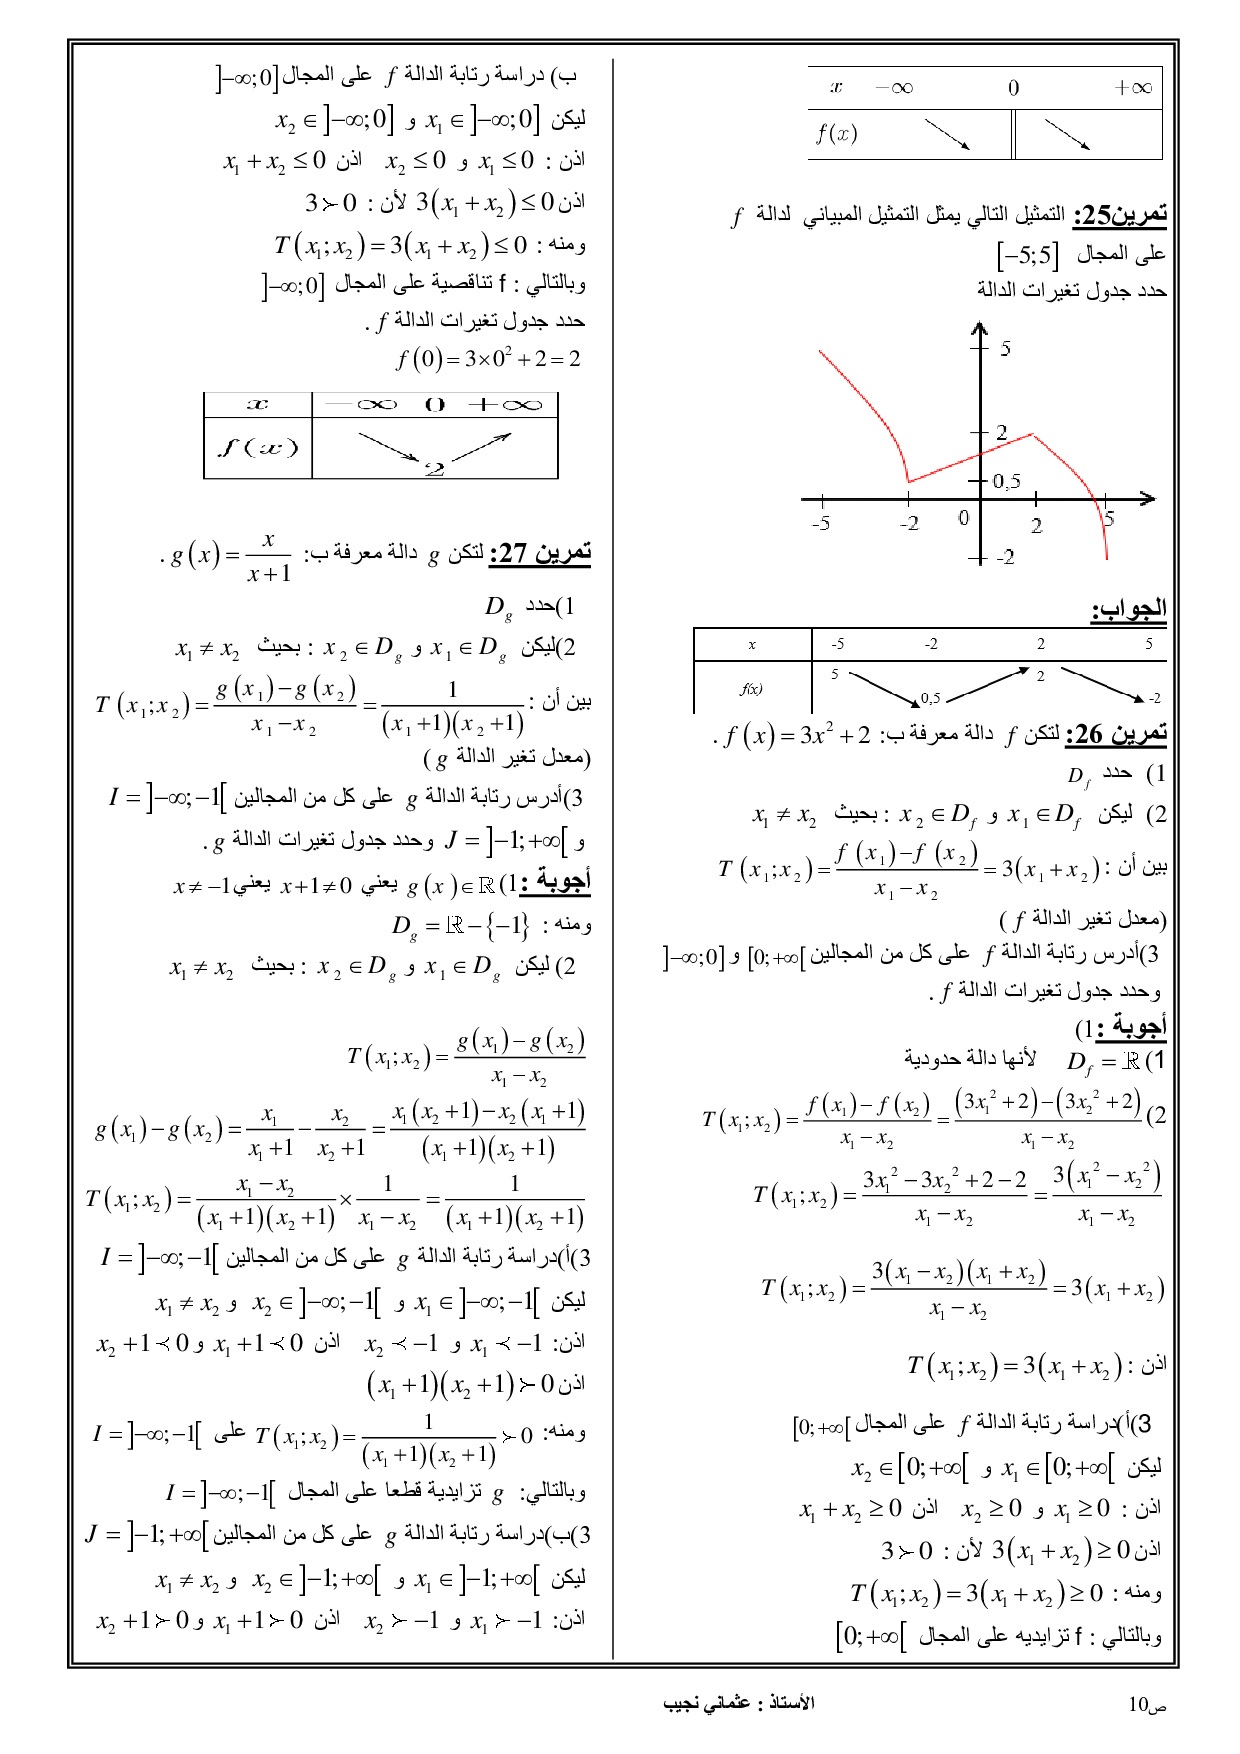 x −∞ 0 +∞
f(x)
تمرين25: التمثيل التالي يمثل التمثيل المبياني لدالة f
على المجال [−5;5]
حدد جدول تغيرات الدالة
5
2
0,5
-5 -2 0 2 5
-2
الجواب:
x -5 -2 2 5
f(x) 5 0,5 2 -2
تمرين 26: لتكن f دالة معرفة ب: f(x) = 3x² + 2 .
1) حدد D_f
2) ليكن x₁ ∈ D_f و x₂ ∈ D_f : بحيث x₁ ≠ x₂
بين أن : T(x₁;x₂) = (f(x₁) − f(x₂))/(x₁ − x₂) = 3(x₁ + x₂)
(معدل تغير الدالة f )
3)أدرس رتابة الدالة f على كل من المجالين [0;+∞[ و ]−∞;0]
وحدد جدول تغيرات الدالة f .
أجوبة :1)
1) D_f = ℝ لأنها دالة حدودية
2) T(x₁;x₂) = (f(x₁) − f(x₂))/(x₁ − x₂) = ((3x₁² + 2) − (3x₂² + 2))/(x₁ − x₂)
T(x₁;x₂) = (3x₁² − 3x₂² + 2 − 2)/(x₁ − x₂) = 3(x₁² − x₂²)/(x₁ − x₂)
T(x₁;x₂) = 3(x₁ − x₂)(x₁ + x₂)/(x₁ − x₂) = 3(x₁ + x₂)
اذن : T(x₁;x₂) = 3(x₁ + x₂)
3)أ)دراسة رتابة الدالة f على المجال [0;+∞[
ليكن x₁ ∈ [0;+∞[ و x₂ ∈ [0;+∞[
اذن : x₁ ≥ 0 و x₂ ≥ 0 اذن x₁ + x₂ ≥ 0
اذن 3(x₁ + x₂) ≥ 0 لأن : 3 ≻ 0
ومنه : T(x₁;x₂) = 3(x₁ + x₂) ≥ 0
وبالتالي : f تزايديه على المجال [0;+∞[
ب) دراسة رتابة الدالة f على المجال ]−∞;0]
ليكن x₁ ∈ ]−∞;0] و x₂ ∈ ]−∞;0]
اذن : x₁ ≤ 0 و x₂ ≤ 0 اذن x₁ + x₂ ≤ 0
اذن 3(x₁ + x₂) ≤ 0 لأن : 3 ≻ 0
ومنه : T(x₁;x₂) = 3(x₁ + x₂) ≤ 0
وبالتالي : f تناقصية على المجال ]−∞;0]
حدد جدول تغيرات الدالة f .
f(0) = 3×0² + 2 = 2
x −∞ 0 +∞
f(x) 2
تمرين 27: لتكن g دالة معرفة ب: g(x) = x/(x+1) .
1)حدد D_g
2)ليكن x₁ ∈ D_g و x₂ ∈ D_g : بحيث x₁ ≠ x₂
بين أن : T(x₁;x₂) = (g(x₁) − g(x₂))/(x₁ − x₂) = 1/((x₁+1)(x₂+1))
(معدل تغير الدالة g )
3)أدرس رتابة الدالة g على كل من المجالين I = ]−∞;−1[
و J = ]−1;+∞[ وحدد جدول تغيرات الدالة g .
أجوبة :1) g(x) ∈ ℝ يعني x+1 ≠ 0 يعني x ≠ −1
ومنه : D_g = ℝ − {−1}
2) ليكن x₁ ∈ D_g و x₂ ∈ D_g : بحيث x₁ ≠ x₂
T(x₁;x₂) = (g(x₁) − g(x₂))/(x₁ − x₂)
g(x₁) − g(x₂) = x₁/(x₁+1) − x₂/(x₂+1) = (x₁(x₂+1) − x₂(x₁+1))/((x₁+1)(x₂+1))
T(x₁;x₂) = (x₁ − x₂)/((x₁+1)(x₂+1)) × 1/(x₁ − x₂) = 1/((x₁+1)(x₂+1))
3)أ)دراسة رتابة الدالة g على كل من المجالين I = ]−∞;−1[
ليكن x₁ ∈ ]−∞;−1[ و x₂ ∈ ]−∞;−1[ و x₁ ≠ x₂
اذن: x₁ ≺ −1 و x₂ ≺ −1 اذن x₁+1 ≺ 0 و x₂+1 ≺ 0
اذن (x₁+1)(x₂+1) ≻ 0
ومنه: T(x₁;x₂) = 1/((x₁+1)(x₂+1)) ≻ 0 على I = ]−∞;−1[
وبالتالي: g تزايدية قطعا على المجال I = ]−∞;−1[
3)ب)دراسة رتابة الدالة g على كل من المجالين J = ]−1;+∞[
ليكن x₁ ∈ ]−1;+∞[ و x₂ ∈ ]−1;+∞[ و x₁ ≠ x₂
اذن: x₁ ≻ −1 و x₂ ≻ −1 اذن x₁+1 ≻ 0 و x₂+1 ≻ 0
ص10 الأستاذ : عثماني نجيب